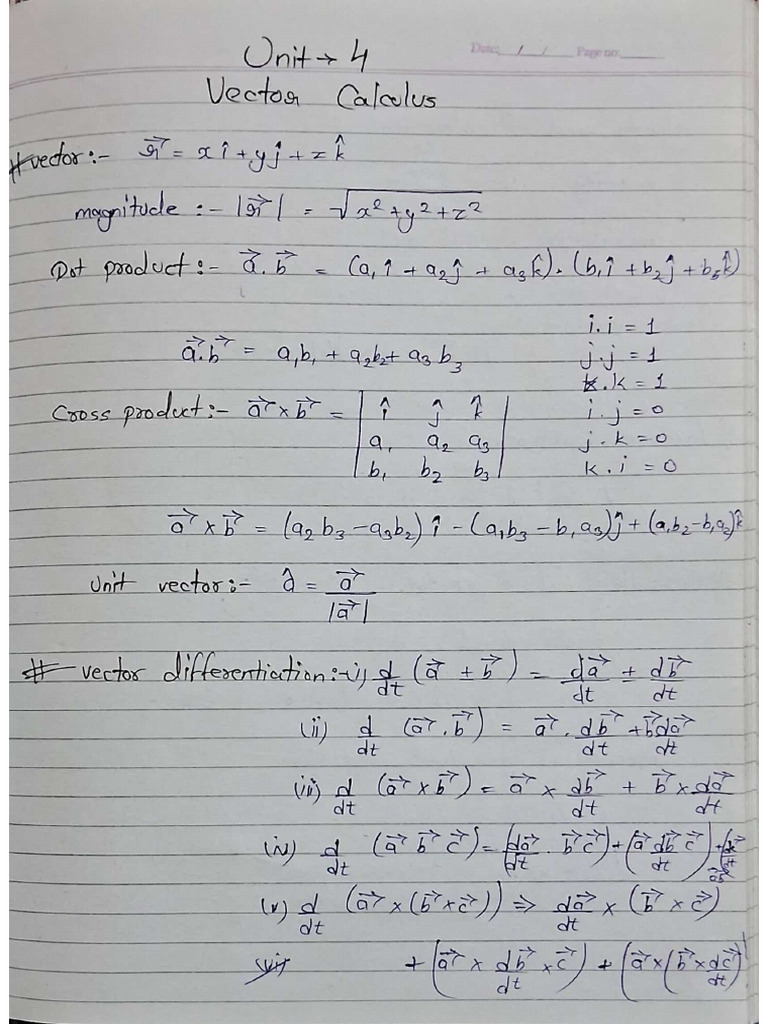 Date: / / Page no:
Unit → 4
Vector Calculus
# vector :- r⃗ = x î + y ĵ + z k̂
magnitude :- |r⃗| = √(x² + y² + z²)
Dot product :- a⃗ . b⃗ = (a₁ î + a₂ ĵ + a₃ k̂) . (b₁ î + b₂ ĵ + b₃ k̂)
i . i = 1
a⃗ . b⃗ = a₁b₁ + a₂b₂ + a₃b₃ j . j = 1
k . k = 1
Cross product :- a⃗ × b⃗ = | î ĵ k̂ | i . j = 0
| a₁ a₂ a₃ | j . k = 0
| b₁ b₂ b₃ | k . i = 0
a⃗ × b⃗ = (a₂b₃ - a₃b₂) î - (a₁b₃ - b₁a₃) ĵ + (a₁b₂ - b₁a₂) k̂
Unit vector :- â = a⃗ / |a⃗|
# vector differentiation :- i) d/dt (a⃗ ± b⃗) = da⃗/dt ± db⃗/dt
(ii) d/dt (a⃗ . b⃗) = a⃗ . db⃗/dt + b⃗ da⃗/dt
(iii) d/dt (a⃗ × b⃗) = a⃗ × db⃗/dt + b⃗ × da⃗/dt
(iv) d/dt (a⃗ b⃗ c⃗) = (da⃗/dt . b⃗ c⃗) + (a⃗ db⃗/dt c⃗) +
(v) d/dt (a⃗ × (b⃗ × c⃗)) ⇒ da⃗/dt × (b⃗ × c⃗)
+ (a⃗ × db⃗/dt × c⃗) + (a⃗ × (b⃗ × dc⃗/dt)